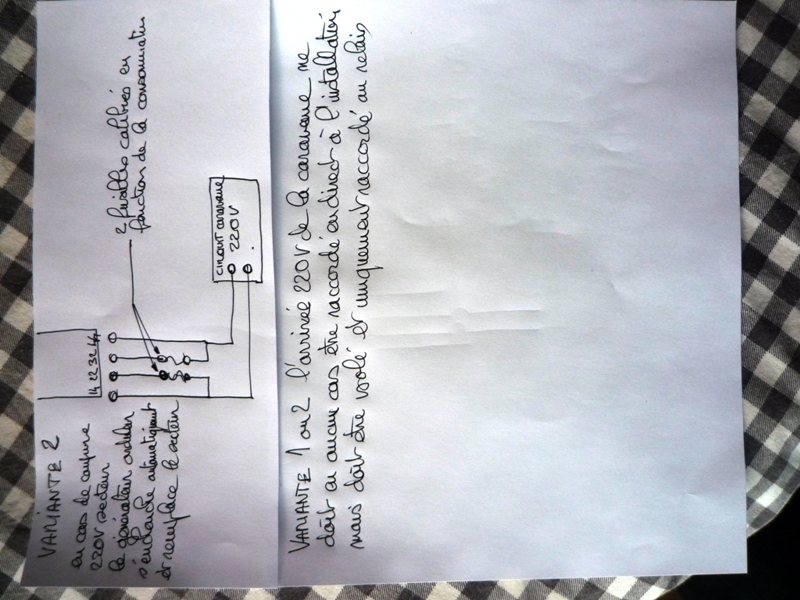 VARIANTE 2
en cas de coupure
220V secteur
le générateur onduleur
s'enclenche automatiquement
et remplace le secteur
14 22 32 44
2 fusibles calibrés en
fonction de la consommation
circuit caravane
220V
VARIANTE 1 ou 2 l'arrivée 220V de la caravane ne
doit en aucun cas être raccordé en direct à l'installation
mais doit être isolé et uniquement raccordé au relais